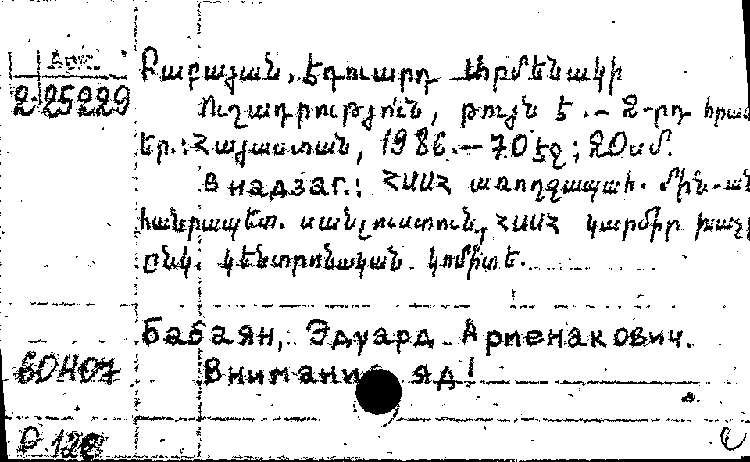 Բաբայան, Էդուարդ Արմենակի
2-25229
Ուշադրություն, թույն է. - 2-րդ հրատ
Եր.: Հայաստան, 1986. - 70 էջ; 20 սմ.
В надзаг.: ՀՍՍՀ առողջապահ. մին.-ան
հանրապետ. սանլուստուն, ՀՍՍՀ կարմիր խաչի
ընկ. կենտրոնական կոմիտե.
Бабаян, Эдуард Арменакович.
Внимание яд!